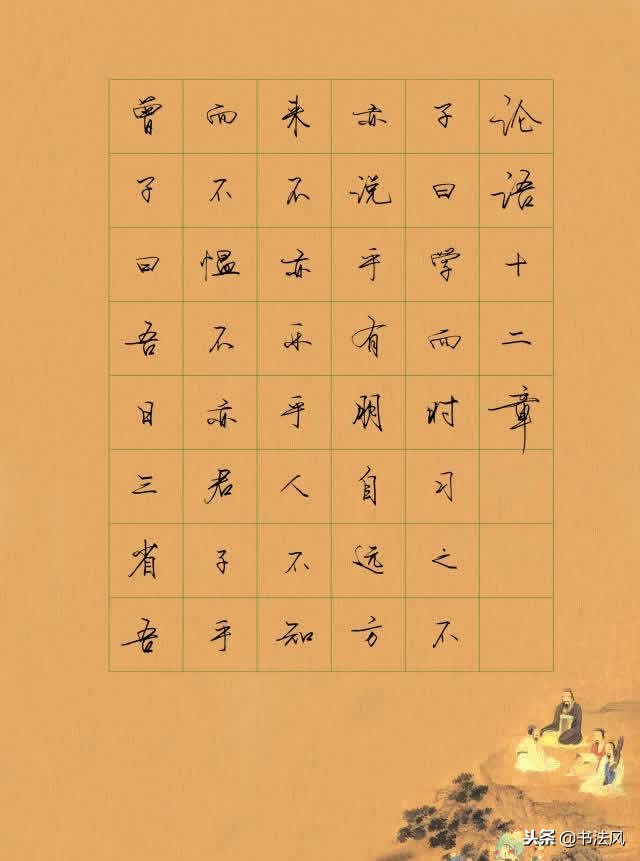 论语十二章
子曰学而时习之不
亦说乎有朋自远方
来不亦乐乎人不知
而不愠不亦君子乎
曾子曰吾日三省吾
头条 @书法风